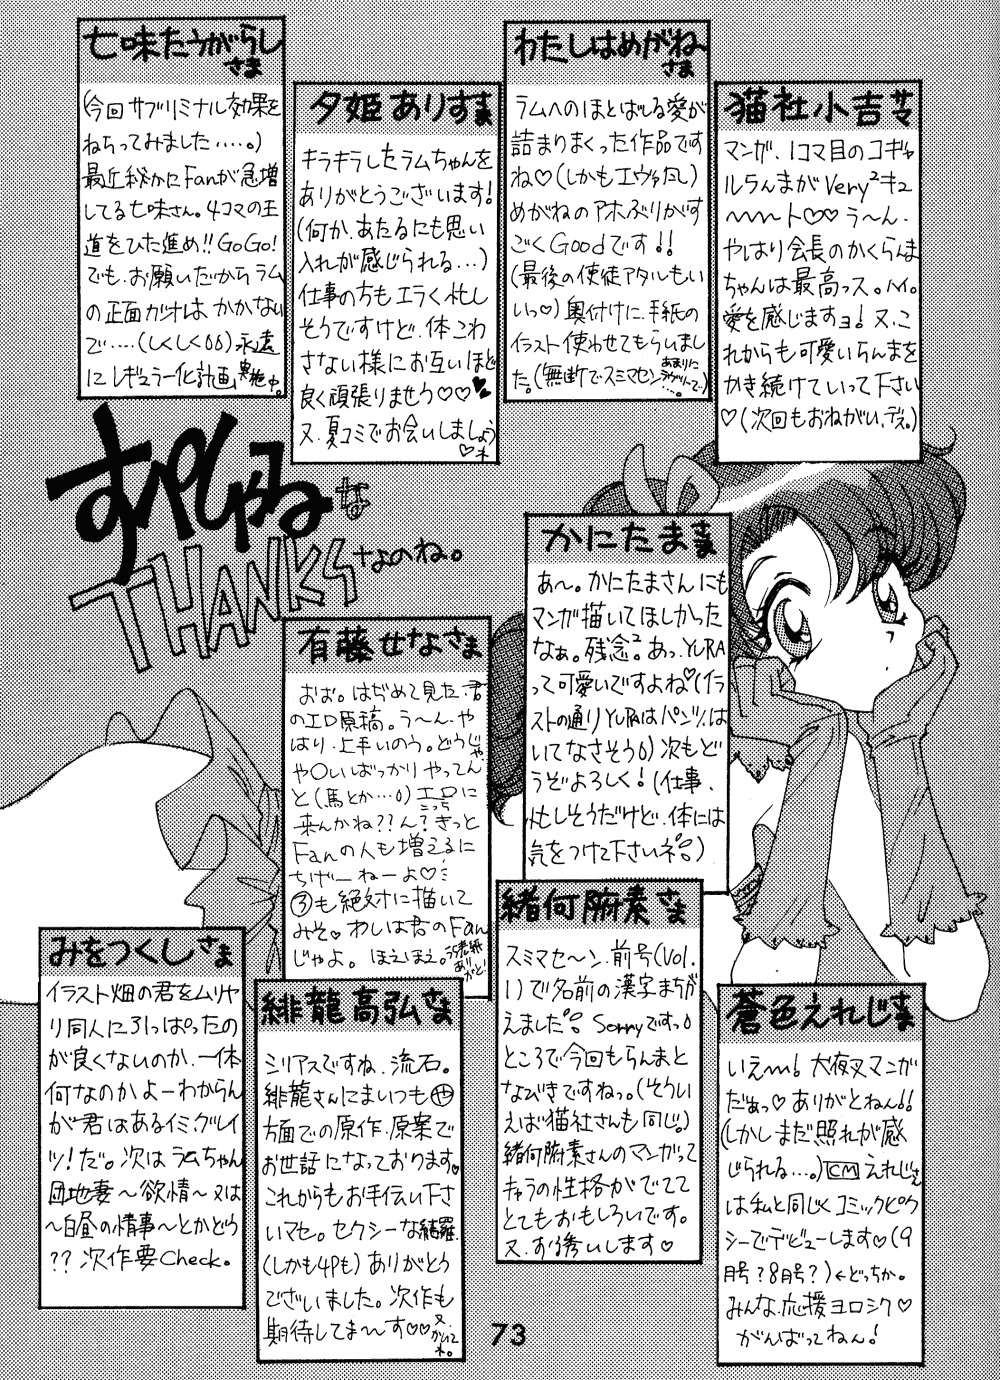 七味たうがらし
さま
(今回サブリミナル効果を
ねらってみました‥‥。)
最近秘かにFanが急増
してる七味さん。4コマの王
道をひた進め!!GoGo!
でも、お願いだからラム
の正面ガオは、かかないで
で‥‥(しくしく) 永遠
にレギュラー化計画実施中。
夕姫ありすさま
キラキラしたラムちゃんを
ありがとうございます!
(何か、あたるにも思い
入れが感じられる…)
仕事の方もエラく忙し
そうですけど、体こわ
さない様にお互いほど
良く頑張りませう♡♡♥
又、夏コミでお会いしましょうね♡
わたしはめがね
さま
ラムへのほとばしる愛が
詰まりまくった作品です
ね♡(しかもエヴァだし)
めがねのアホぶりがす
ごくGoodです!!
(最後の使徒アタルもい
いっ♡)奥付けに、手紙の
イラスト使わせてもらいまし
た。(無断でスミマセン
猫社小吉サマ
マンガ、1コマ目のコギャ
ルらんまがVery²キュ
〜〜ート♡♡う〜ん、
やはり会長のかくらんま
ちゃんは最高っス。ハイ。
愛を感じますヨ!又、こ
れからも可愛いらんまを
かき続けていって下さい
♡(次回もおねがい、デス。)
すぺしゃるな
THANKSなのね。
かにたまさま
あ〜。かにたまさんにも
マンガ描いてほしかった
なぁ。残念²。あっ、YURA
って可愛いですよね♡(イラ
ストの通りYURAはパンツは
いてなさそう)次もど
うぞよろしく!(仕事、
忙しそうだけど、体には
気をつけて下さいネ。)
有藤せなさま
おお。はぢめて見た、君
のエロ原稿。う〜ん、や
はり、上手いのう。どうじゃ
や〇いばっかりやってん
と(馬とか…)エロに
こっち
来んかね??ん?きっと
Fanの人も増えるに
ちげーねーよ♡
③も絶対に描いて
みそ♥わしは君のFan
じゃよ。ほえほえ。うら表紙ありがと!
緒何腑素さま
スミマセ〜ン、前号(Vol.
1)で名前の漢字まちが
えました。Sorryですっ
ところで今回もらんまと
なびきですねっ。(そうい
えば猫社さんも同じ。)
緒何腑素さんのマンガって
キャラの性格がでてて
とてもおもしろいです。
又、お誘いします♥
みをつくしさま
イラスト畑の君をムリヤ
リ同人に引っぱったの
が良くないのか、一体
何なのかよーわからん
が君はあるイミ、グレイ
ツ!だ。次はラムちゃん
団地妻〜欲情〜又は
〜白昼の情事〜とかどう
??次作要Check。
緋龍高弘さま
シリアスですね、流石。
緋龍さんにはいつも㋳
方面での原作、原案で
お世話になっております。
これからもお手伝い下さ
いマセ。セクシーな綺羅
(しかも4Pも)ありがとう
ございました。次作も
期待してま〜す♡♡又、かいてね。
蒼色えれじさま
いえ〜い!犬夜叉マンガ
だぁっ♡ありがとねん!!
(しかしまだ照れが感
じられる…。)CMえれじさん
は私と同じくコミックピク
シーでデビューします♡(9
月号?8月号?)←どっちか。
みんな、応援ヨロシク♡
がんばってねん!
73